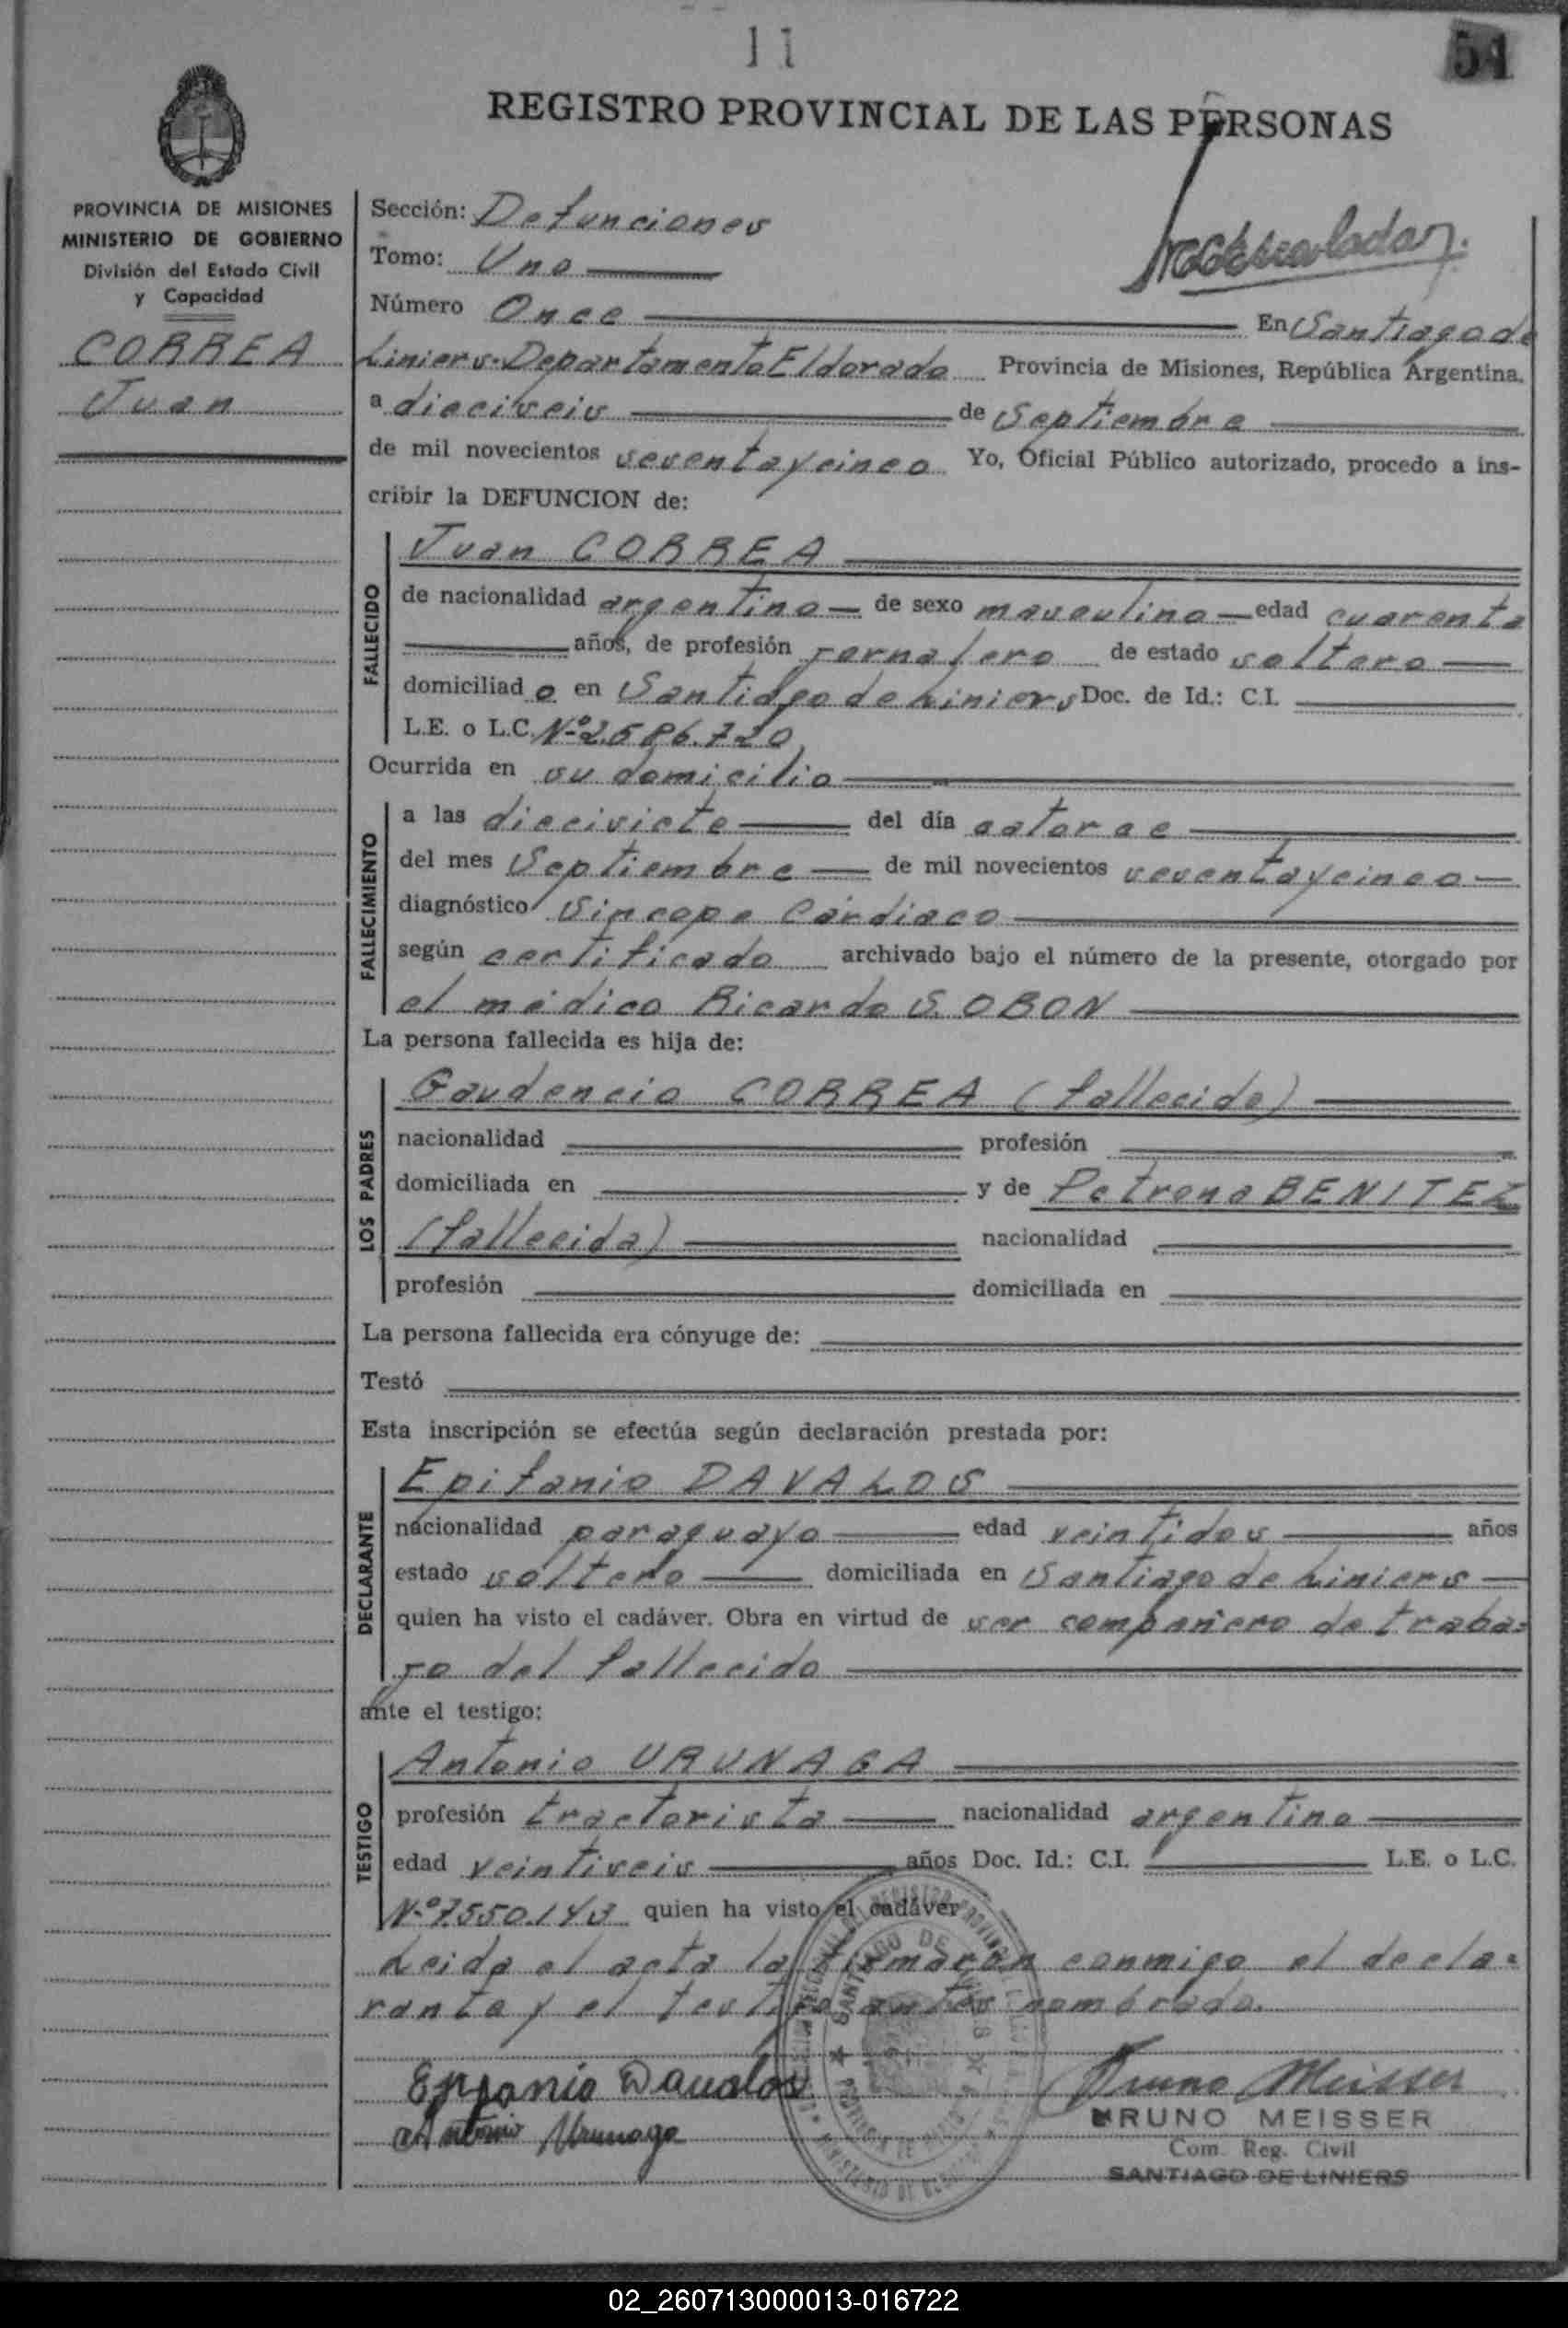 11
51
REGISTRO PROVINCIAL DE LAS PERSONAS
PROVINCIA DE MISIONES
MINISTERIO DE GOBIERNO
División del Estado Civil
y Capacidad
CORREA
Juan
Sección: Defunciones
Tomo: Uno
Número Once En Santiago de
Liniers-Departamento Eldorado Provincia de Misiones, República Argentina.
a dieciseis de Septiembre
de mil novecientos sesentaycinco Yo, Oficial Público autorizado, procedo a ins-
cribir la DEFUNCION de:
FALLECIDO
Juan CORREA
de nacionalidad argentino de sexo masculino edad cuarenta
años, de profesión jornalero de estado soltero
domiciliado en Santiago de Liniers Doc. de Id.: C.I.
L.E. o L.C. Nº 2.586.720
Ocurrida en su domicilio
FALLECIMIENTO
a las diecisiete del día catorce
del mes Septiembre de mil novecientos sesentaycinco
diagnóstico Sincope Cardiaco
según certificado archivado bajo el número de la presente, otorgado por
el médico Ricardo S. OBON
La persona fallecida es hija de:
LOS PADRES
Gaudencio CORREA (fallecido)
nacionalidad profesión
domiciliada en y de Petrona BENITEZ
(fallecida) nacionalidad
profesión domiciliada en
La persona fallecida era cónyuge de:
Testó
Esta inscripción se efectúa según declaración prestada por:
DECLARANTE
Epifanio DAVALOS
nacionalidad paraguayo edad veintidos años
estado soltero domiciliada en Santiago de Liniers
quien ha visto el cadáver. Obra en virtud de ser compañero de traba=
jo del fallecido
ante el testigo:
TESTIGO
Antonio URUNAGA
profesión tractorista nacionalidad argentino
edad veintiseis años Doc. Id.: C.I. L.E. o L.C.
Nº 7.550.143 quien ha visto el cadáver
Leida el acta la firmaron conmigo el decla=
rante y el testigo antes nombrado.
Epifanio Davalos
Antonio Urunaga
Bruno Meisser
BRUNO MEISSER
Com. Reg. Civil
SANTIAGO DE LINIERS
02_260713000013-016722